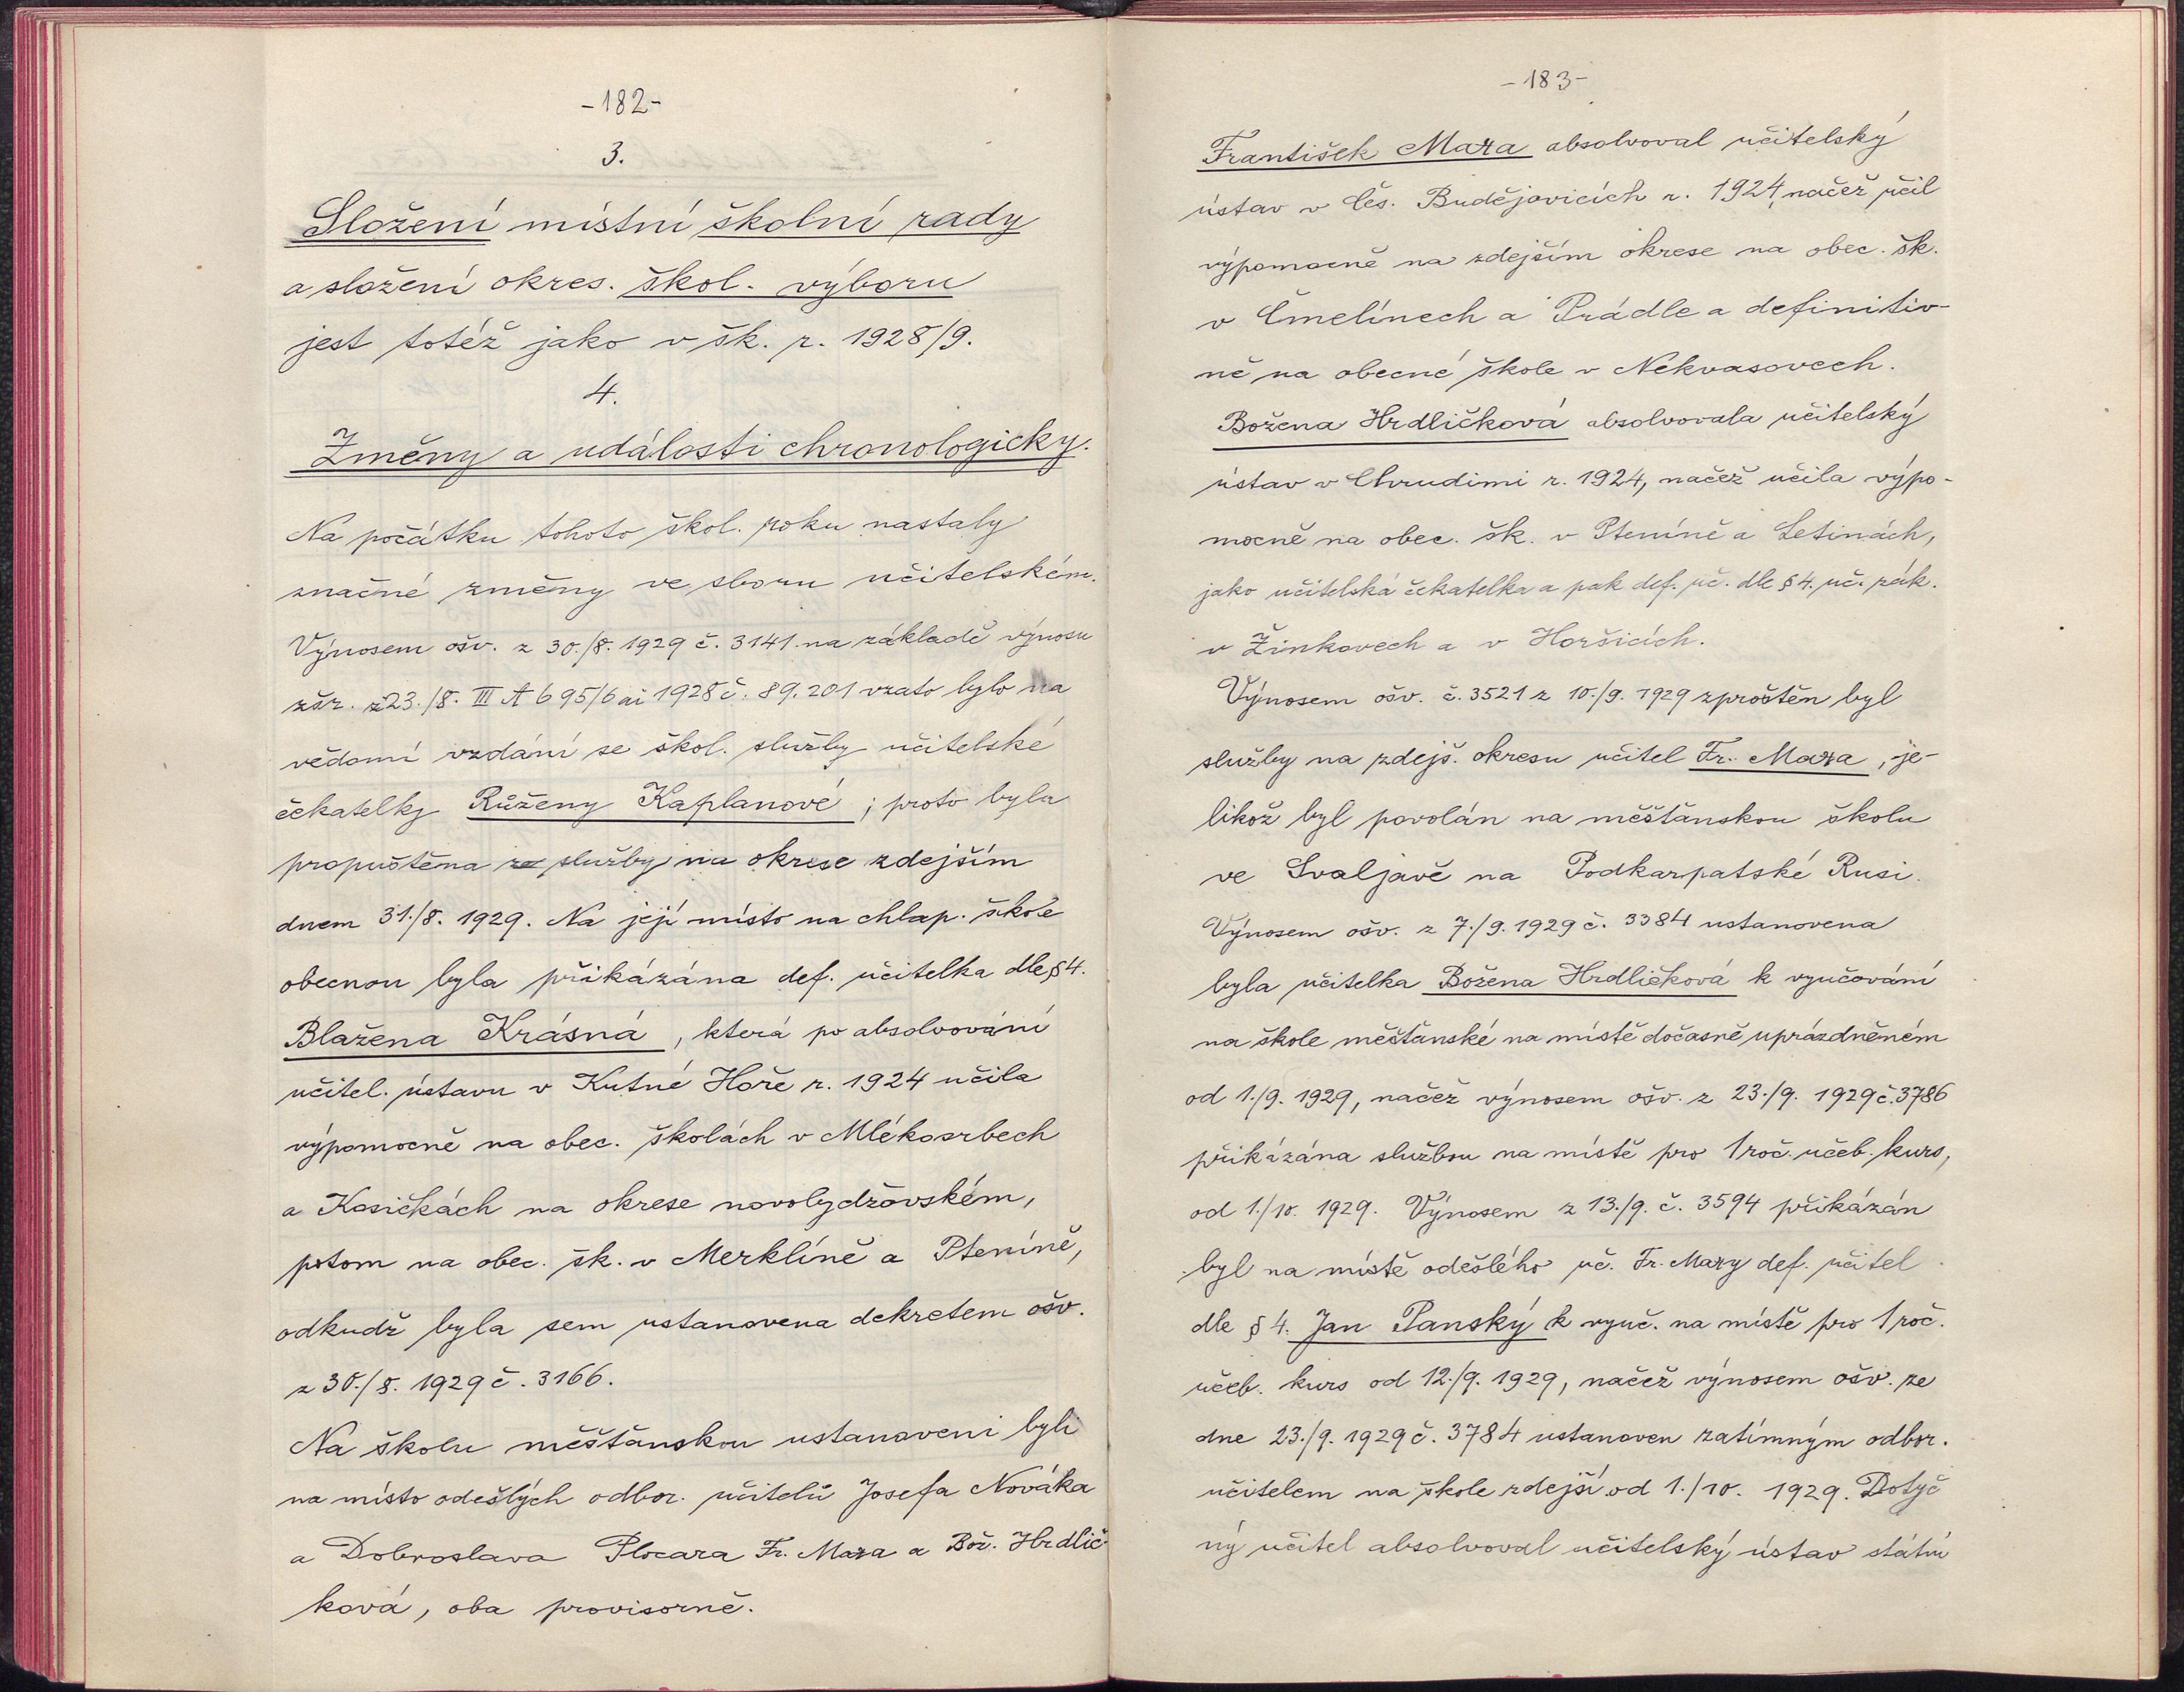 -182-
3.
Složení místní školní rady
a složení okres. škol. výboru
jest totéž jako v šk. r. 1928/9.
4.
Změny a události chronologicky.
Na počátku tohoto škol. roku nastaly
značné změny ve sboru učitelském.
Výnosem ošv. z 30./8. 1929 č. 3141 na základě výnosu
zšr. z 23./8. III A 695/6 ai 1928 č. 89.201 vzato bylo na
vědomí vzdání se škol. služby učitelské
čekatelky Růženy Kaplanové; proto byla
propuštěna ze služby na okrese zdejším
dnem 31./8. 1929. Na její místo na chlap. škole
obecnou byla přikázána def. učitelka dle § 4.
Blažena Krásná, která po absolvování
učitel. ústavu v Kutné Hoře r. 1924 učila
výpomocně na obec. školách v Mlékosrbech
a Kosičkách na okrese novobydžovském,
potom na obec. šk. v Merklíně a Pteníně,
odkudž byla sem ustanovena dekretem ošv.
z 30./8. 1929 č. 3166.
Na školu měšťanskou ustanoveni byli
na místo odešlých odbor. učitelů Josefa Nováka
a Dobroslava Plocara Fr. Maza a Bož. Hrdlič-
ková, oba provisorně.
-183-
František Maza absolvoval učitelský
ústav v Čes. Budějovicích r. 1924, načež učil
výpomocně na zdejším okrese na obec. šk.
v Čmelínech a Prádle a definitiv-
ně na obecné škole v Nekvasovech.
Božena Hrdličková absolvovala učitelský
ústav v Chrudimi r. 1924, načež učila výpo-
mocně na obec. šk. v Pteníně a Letinách,
jako učitelská čekatelka a pak def. uč. dle § 4. uč. zák.
v Žinkovech a v Horšicích.
Výnosem ošv. č. 3521 z 10./9. 1929 zproštěn byl
služby na zdejš. okresu učitel Fr. Maza, je-
likož byl povolán na měšťanskou školu
ve Svaljavě na Podkarpatské Rusi.
Výnosem ošv. z 7./9. 1929 č. 3384 ustanovena
byla učitelka Božena Hrdličková k vyučování
na škole měšťanské na místě dočasně uprázdněném
od 1./9. 1929, načež výnosem ošv. z 23./9. 1929 č. 3786
přikázána službou na místě pro 1 roč. učeb. kurs,
od 1./10. 1929. Výnosem z 13./9. č. 3594 přikázán
byl na místě odešlého uč. Fr. Mazy def. učitel
dle § 4. Jan Panský k vyuč. na místě pro 1 roč.
učeb. kurs od 12./9. 1929, načež výnosem ošv. ze
dne 23./9. 1929 č. 3784 ustanoven zatímným odbor.
učitelem na škole zdejší od 1./10. 1929. Dotyč
ný učitel absolvoval učitelský ústav státní